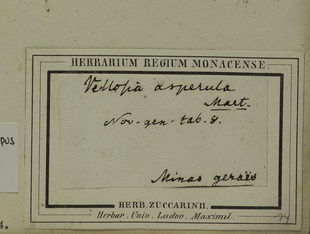 HERBARIUM REGIUM MONACENSE.
Vellosia asperula
Mart.
Nov. gen. tab. 8.
Minas geraës
HERB. ZUCCARINII.
Herbar. Univ. Ludov. Maximil.